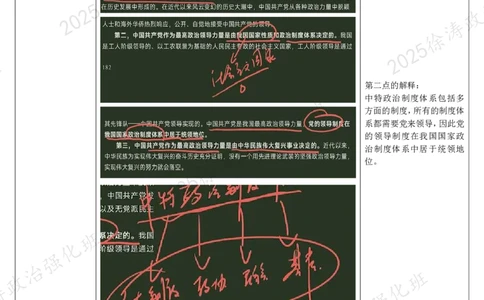 在历史发展中形成的。在近代以来风云变幻的历史大潮中，中国共产党从各种政治力量中脱颖
人士和海外华侨热烈响应，公开、自觉地接受中国共产党的领导。
第二，中国共产党作为最高政治领导力量是由我国国家性质和政治制度体系决定的。我国
是工人阶级领导的、以工农联盟为基础的人民民主专政的社会主义国家，工人阶级领导是通过
182
其先锋队——中国共产党领导实现的。中国共产党是我国最高政治领导力量，党的领导制度在
我国国家政治制度体系中居于统领地位。
第三，中国共产党作为最高政治领导力量是由中华民族伟大复兴事业决定的。近代以来，
中华民族为实现伟大复兴的奋斗历史充分证明，没有一个用先进理论武装的坚强政治领导力量，
实现伟大复兴的努力就会落空。
中特政治制度
，中国共产党
以及无党派民主
系决定的。我国
阶级领导是通过
政协
第二点的解释：
中特政治制度体系包括多
方面的制度，所有的制度体
系都需要党来领导，因此党
的领导制度在我国国家政
治制度体系中居于统领地
位。
2025徐涛政
政治强化班
化班